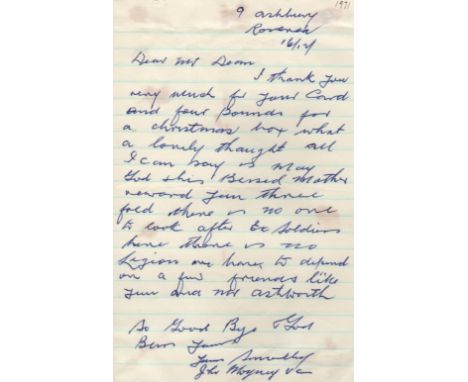 1971
9 Ashbury
Roscrea
16/12/
Dear Mr Doom
I thank you
very much for your Card
and four Pounds for
a christmas box what
a lovely thought all
I can say is may
God & his Blessed Mother
reward you three
fold there is no one
to look after Ex Soldiers
here there is no
Legion we have to depend
on a few friends like
you and mr ashworth
So Good Bye & God
Bless you
Yours Sincerely
Jhn Moyney VC